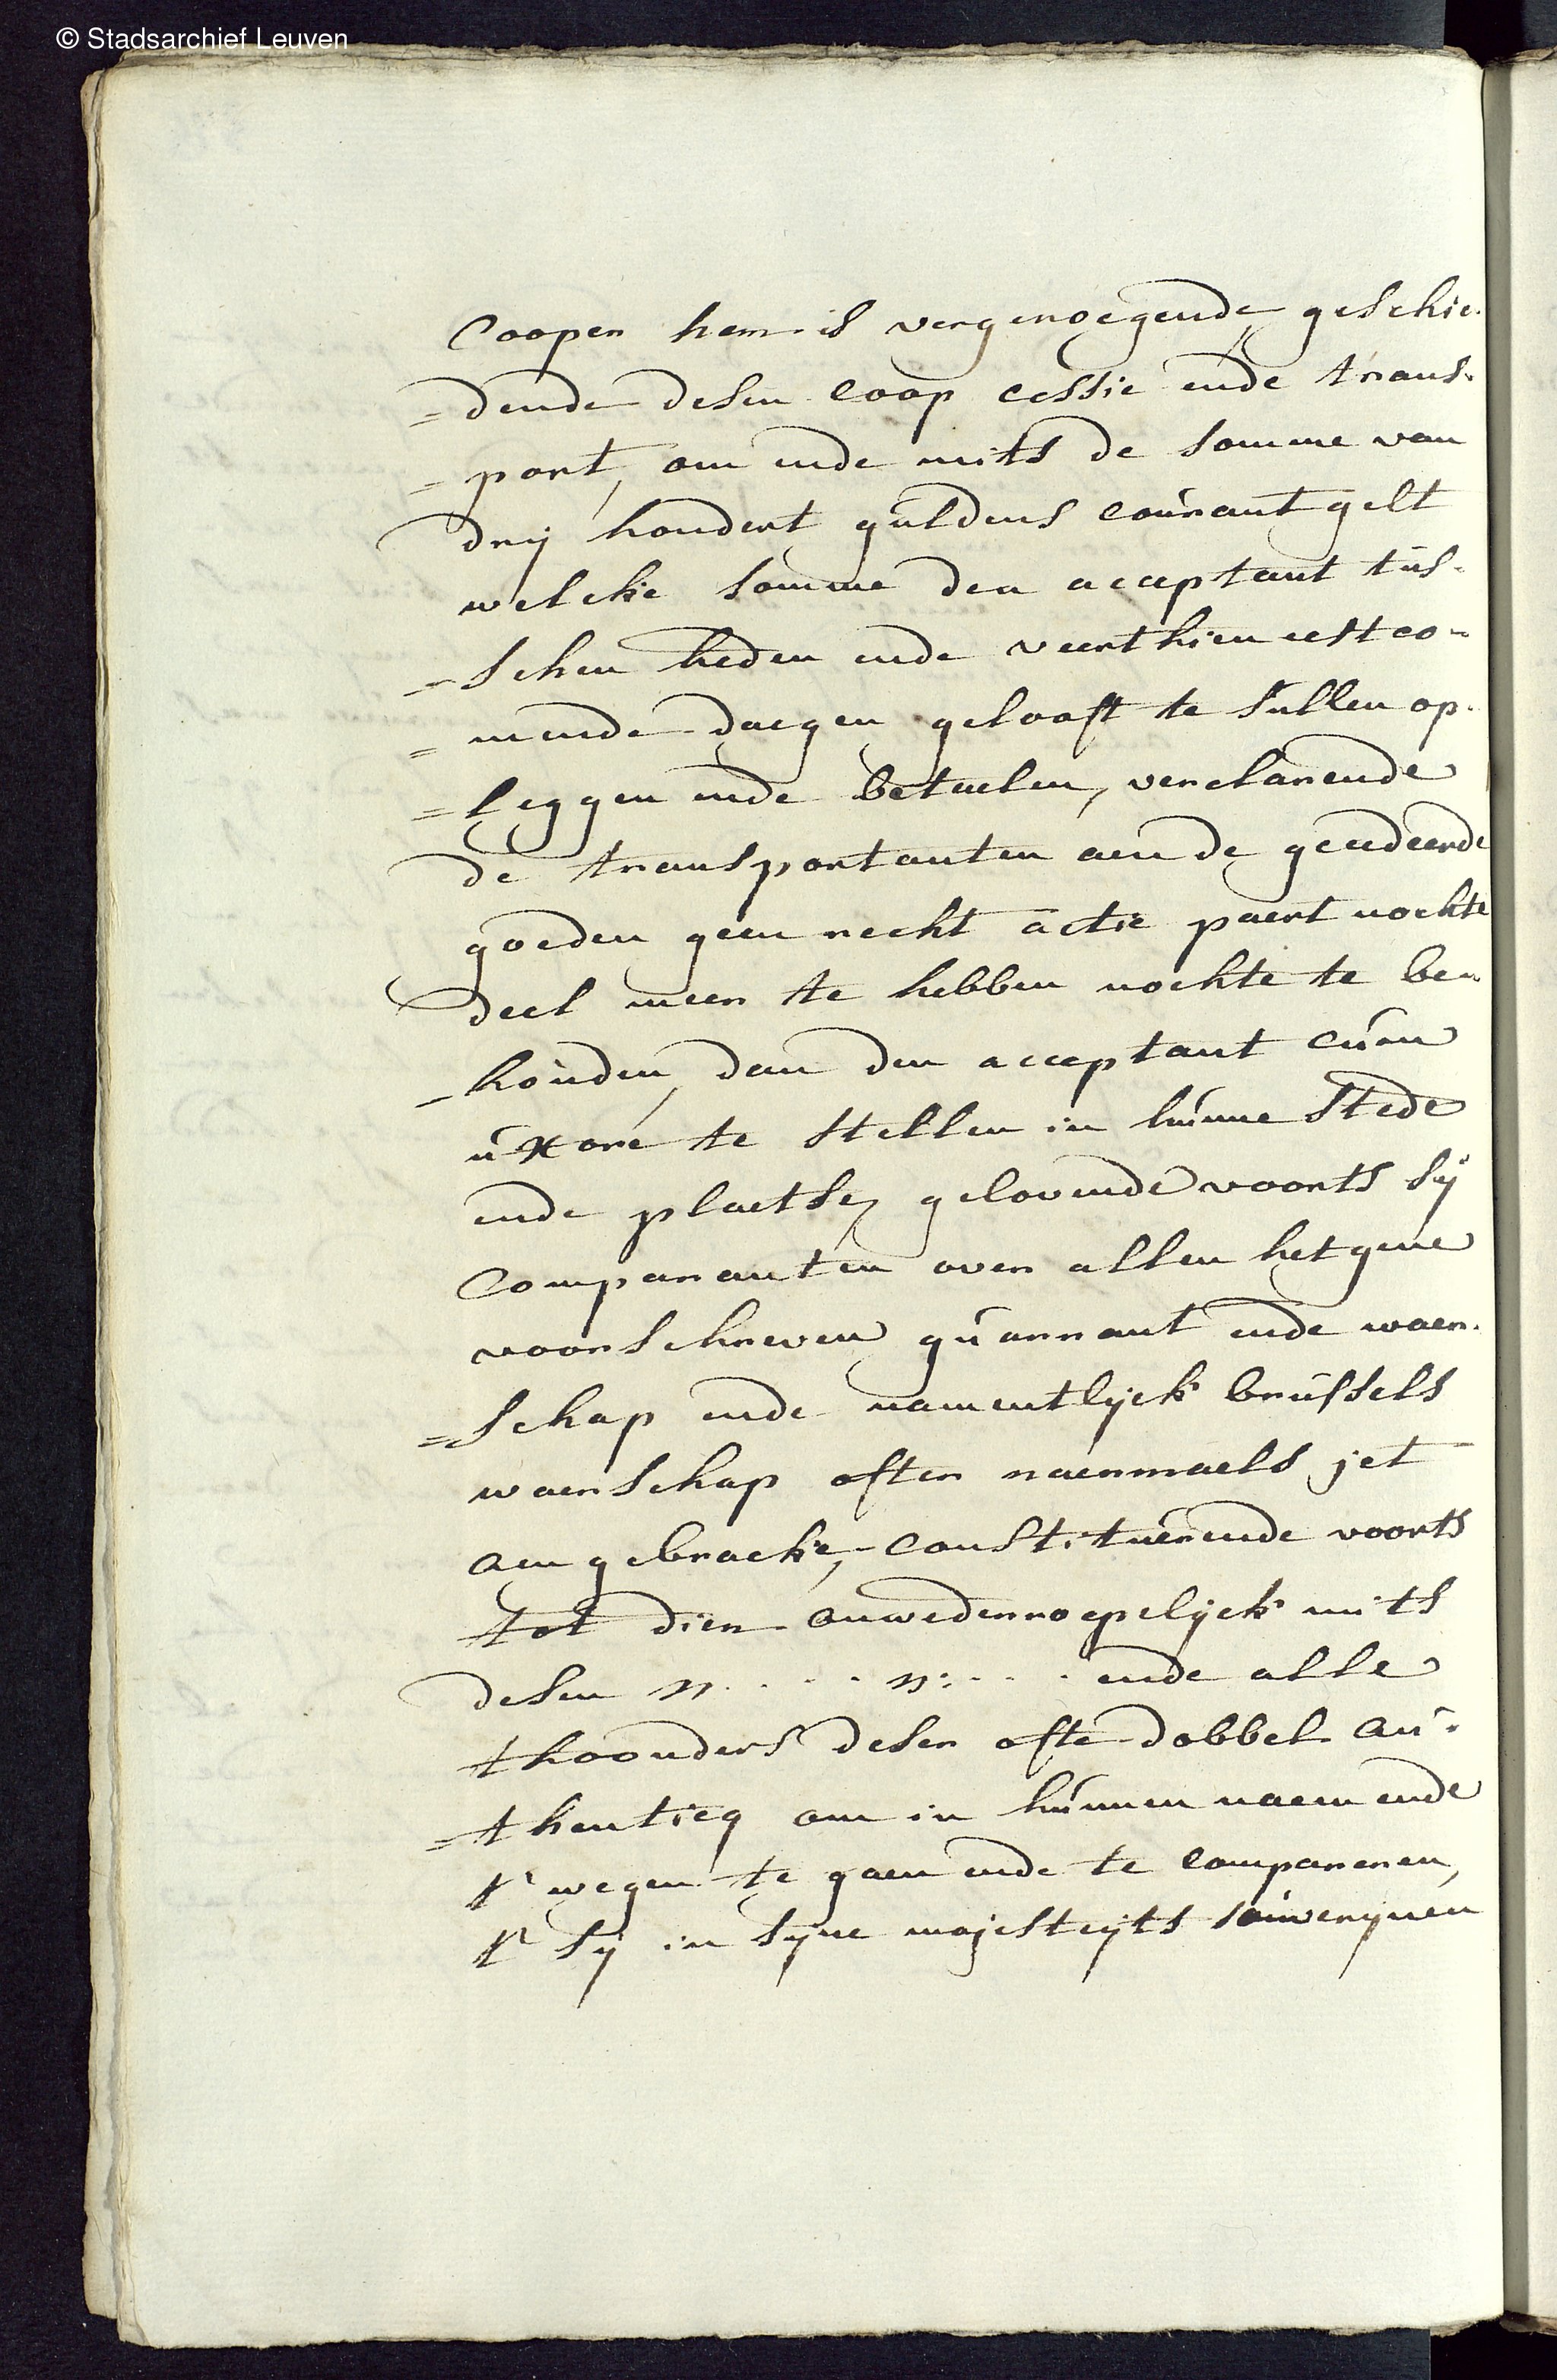 © Stadsarchief Leuven
Cooper hem is vergenoegende, geschie-
=dende desen coop cessie ende trans-
=port, om ende mits de somme van
drij hondert guldens courant gelt
welcke somme den acceptant tus-
=schen heden ende veerthien eestco-
=mende daegen gelooft te sullen op-
=leggen ende betaelen, verclarende
de transportanten aen de gecedeerde
goeden geen recht actie paert nochte
deel meer te hebben nochte te be-
-houden, dan den acceptant cum
uxore te stellen in hunne stede
ende plaetse, gelovende voorts sij
comparanten over allen hetgene
voorschreven guarrant ende waer-
=schap ende namentlijck brussels
waerschap ofter naermaels jet
aen gebracke, constituerende voorts
tot dien onwederroepelijck mits
desen n. . . . n: . . . ende alle
thoonders deser ofte dobbel au-
=thentieq om in hunnen naem ende
t' wegen te gaen ende te compareren,
t' sij in sijne majesteijts souverijnen